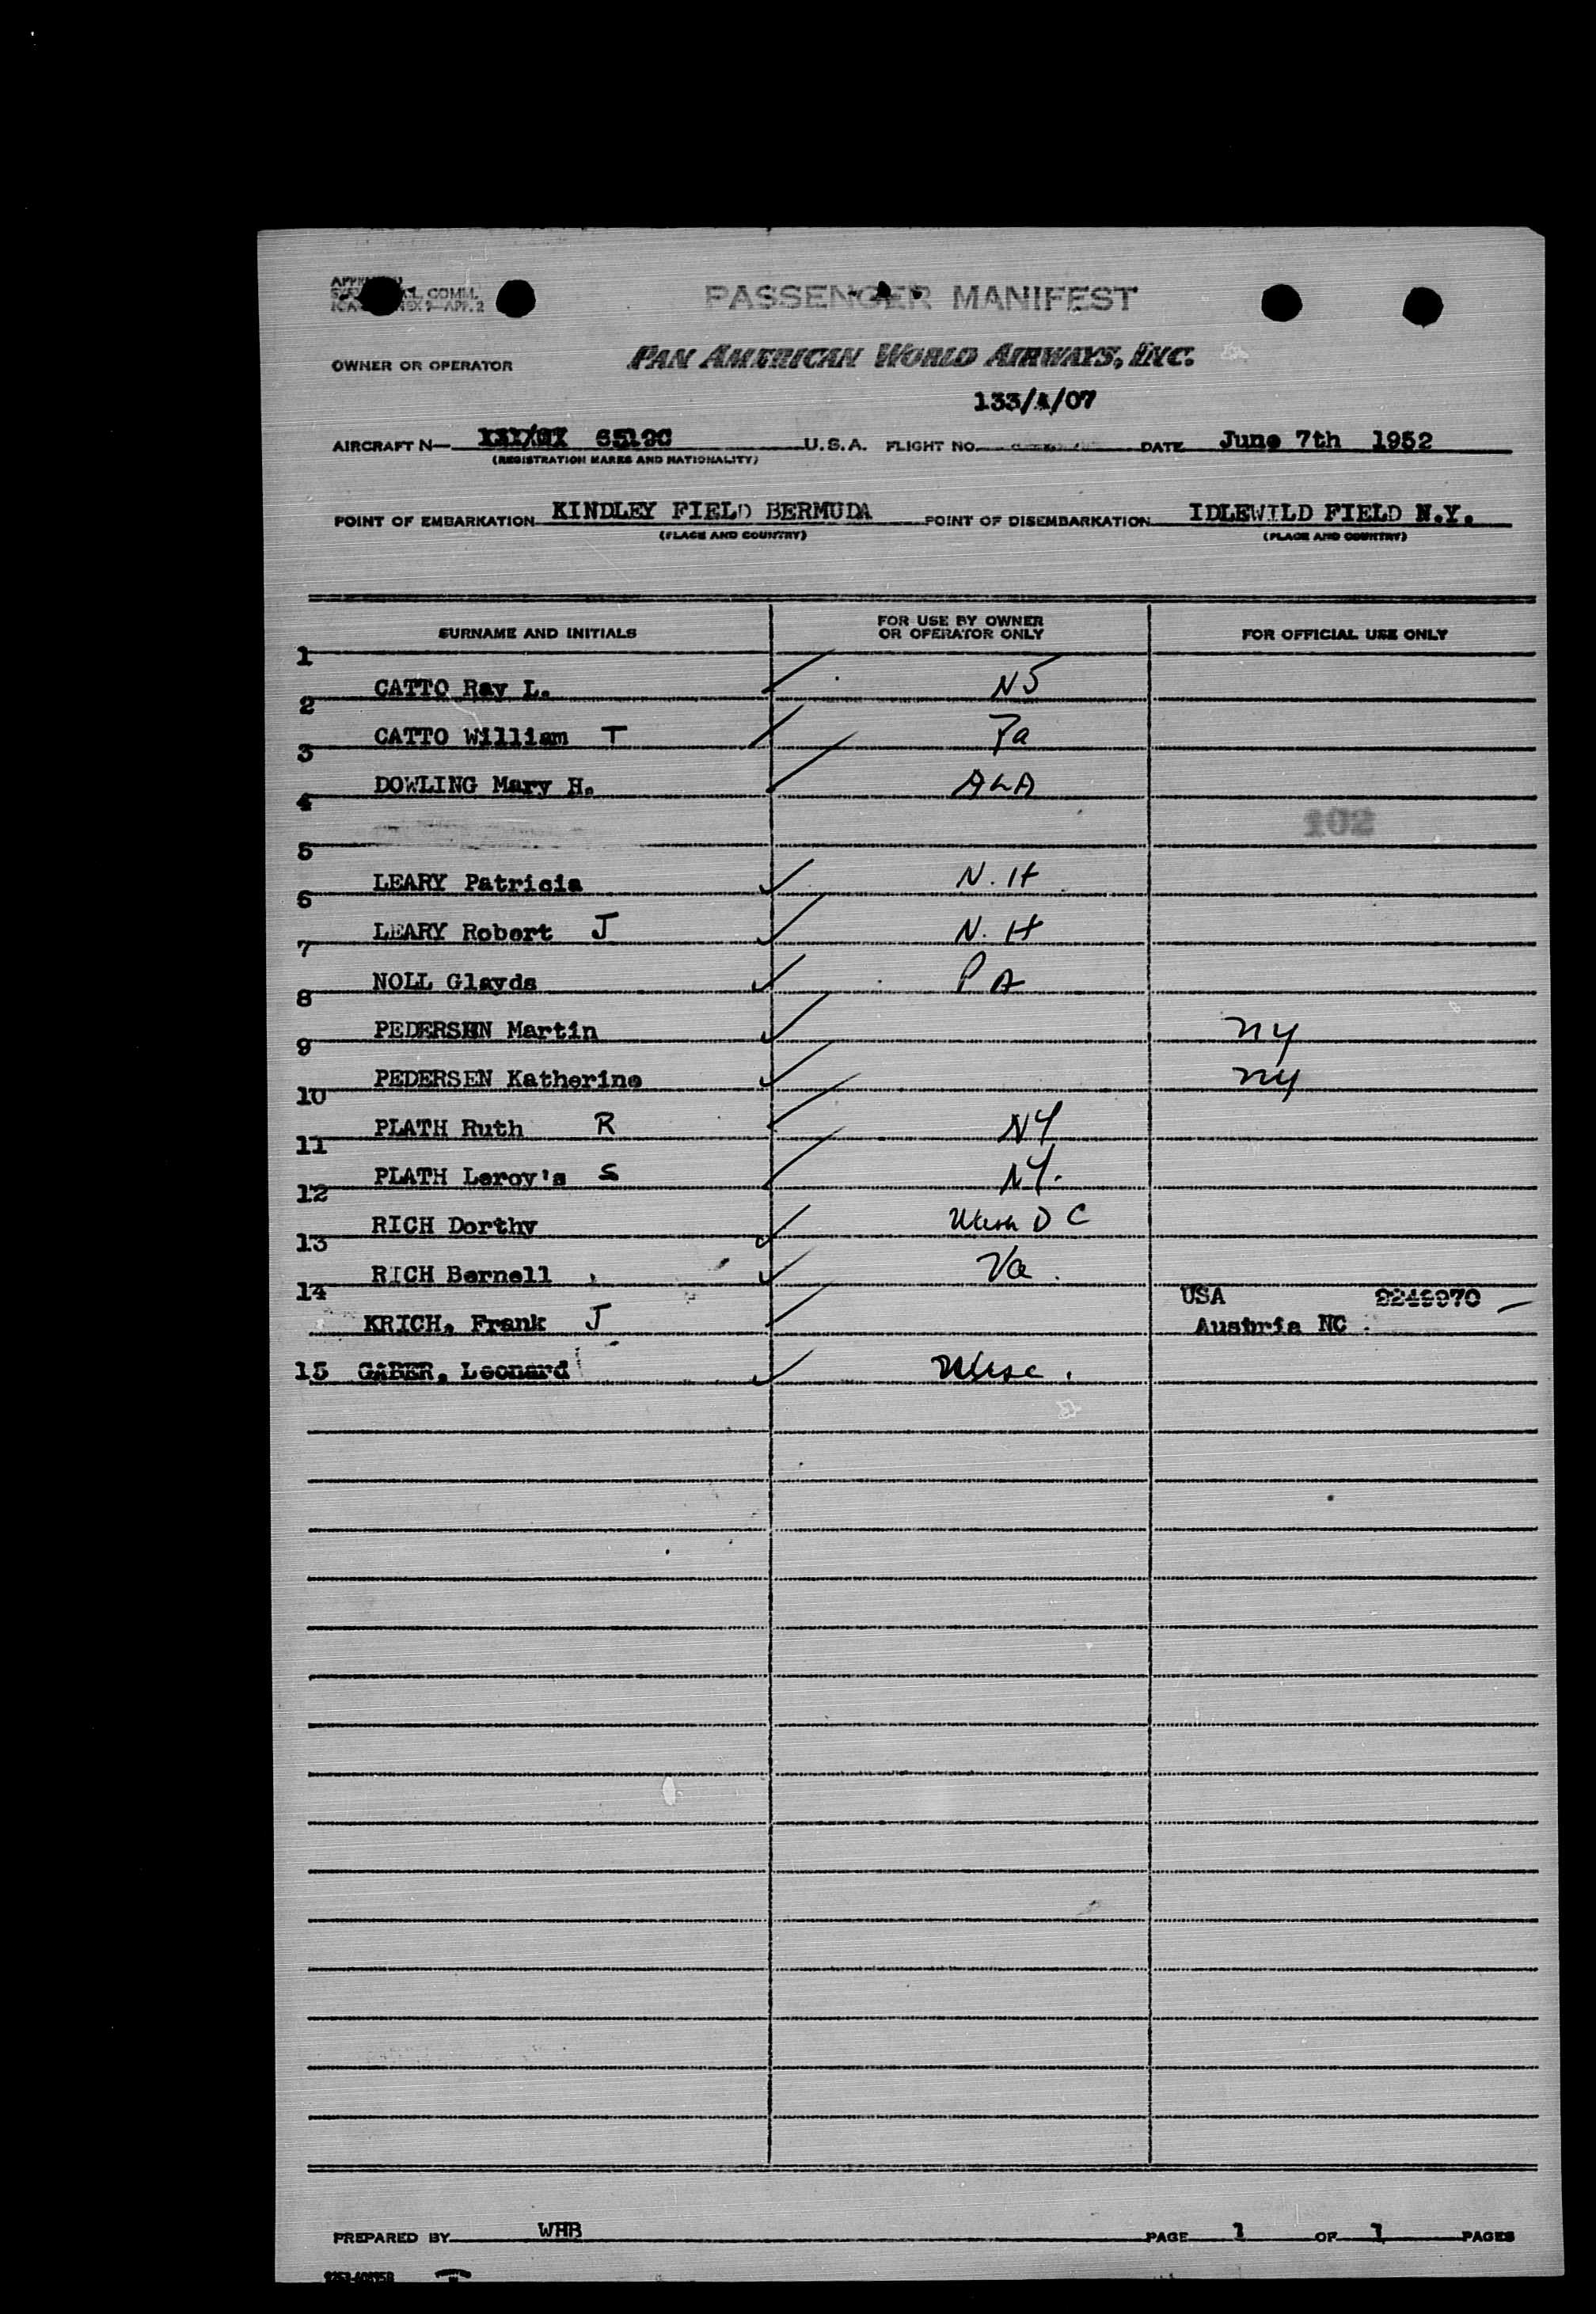 PASSENGER MANIFEST
OWNER OR OPERATOR PAN AMERICAN WORLD AIRWAYS, INC.
133/A/07
AIRCRAFT N— 6519C U.S.A. FLIGHT NO. DATE June 7th 1952
(REGISTRATION MARKS AND NATIONALITY)
POINT OF EMBARKATION KINDLEY FIELD BERMUDA POINT OF DISEMBARKATION IDLEWILD FIELD N.Y.
(PLACE AND COUNTRY) (PLACE AND COUNTRY)
SURNAME AND INITIALS FOR USE BY OWNER OR OPERATOR ONLY FOR OFFICIAL USE ONLY
1
CATTO Ray L. NJ
2
CATTO William T Pa
3
DOWLING Mary H. ALA
4
102
5
LEARY Patricia N.H
6
LEARY Robert J N.H
7
NOLL Glayds PA
8
PEDERSEN Martin NY
9
PEDERSEN Katherine NY
10
PLATH Ruth R NY
11
PLATH Leroy's S NY.
12
RICH Dorthy Wash D C
13
RICH Bernell Va
14 USA 9249970
KRICH, Frank J Austria NC
15 GABER, Leonard
PREPARED BY WHB PAGE 1 OF 1 PAGES